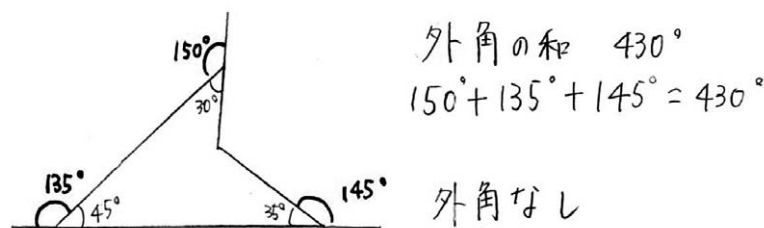 150°
30°
135°
45°
35°
145°
外角の和 430°
150°+135°+145°=430°
外角なし